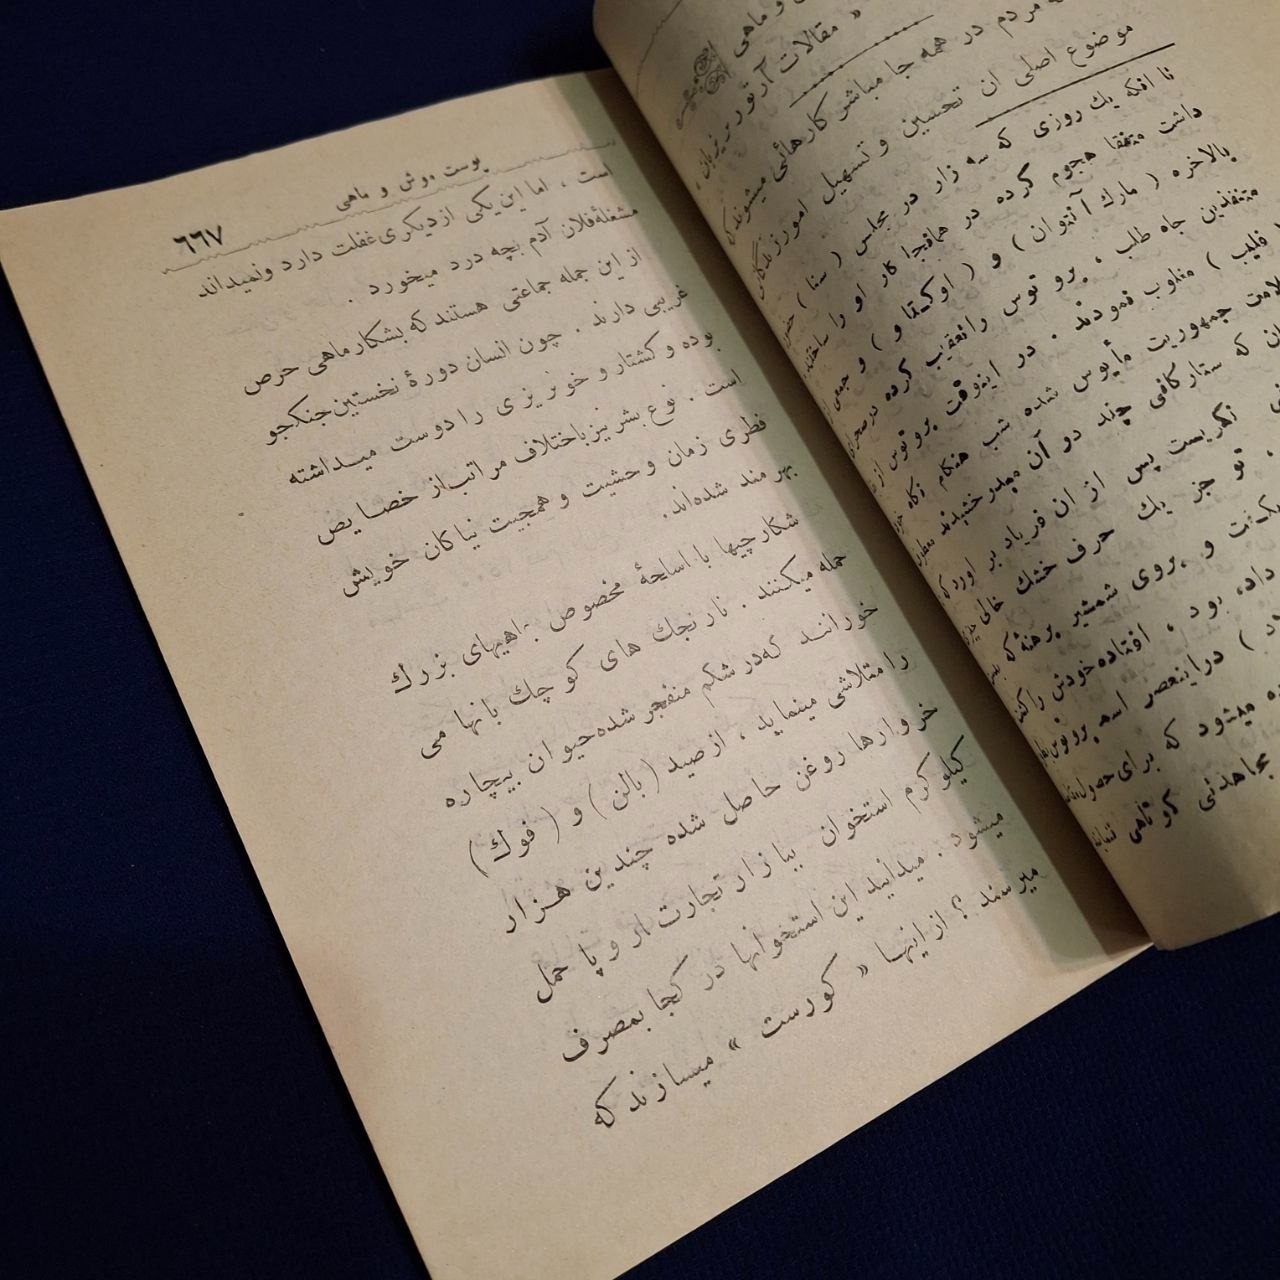 و ماهی
« مقالات آرتور بریزبان .
مردم در همه جا مباشر کارهائی میشوند که
موضوع اصلی ان تحسین و تسهیل امور زندگانی
تا افکه یك روزی که سه زار در مجلس ( سنا ) حضور
داشت متفقا هجوم کرده در همانجا کار او را ساختند
بالاخره ( مارك آنتوان ) و ( اوکتا و ) و جمعی
متنفذین جاه طلب ، برو توس را تعقیب کرده در صحرای
فلیپ ) مغلوب نمودند . در اینوقت بروتوس از
جمهوریت مأیوس شده شب هنگام نگاه
که ستار کافی چند در آن میدرخشیدند
نگریست پس از ان فریاد بر اورد که
، تو جز یك حرف خشك خالی
و بروی شمشیر برهنهٔ که
داد، بود ، افتاده خودش را
) در اینعصر اسم بروتوس
میشود که برای حصول
مجاهدتی کوتاهی
پوست موش و ماهی
٦٦٧
است ، اما این یکی از دیگری غفلت دارد و نمیداند
مشغلهٔ فلان آدم بچه درد میخورد .
از این جمله جماعتی هستند که بشکار ماهی حرص
غریبی دارند . چون انسان دورهٔ نخستین جنگجو
بوده و کشتار و خونریزی را دوست میداشته
است . نوع بشر نیز باختلاف مراتب از خصایص
فطری زمان وحشیت و همجیت نیاکان خویش
بهرمند شده‌اند.
شکارچیها با اسلحهٔ مخصوص بماهیهای بزرك
حمله میکنند . نارنجك های کوچك بانها می
خورانند که در شکم منفجر شده حیوان بیچاره
را متلاشی مینماید ، از صید ( بالن ) و ( فوك )
خروارها روغن حاصل شده چندین هزار
کیلوگرم استخوان ببازار تجارت اروپا حمل
میشود . میدانید این استخوانها در کجا بمصرف
میرسند ؟ از اینها « کورست » میسازند که